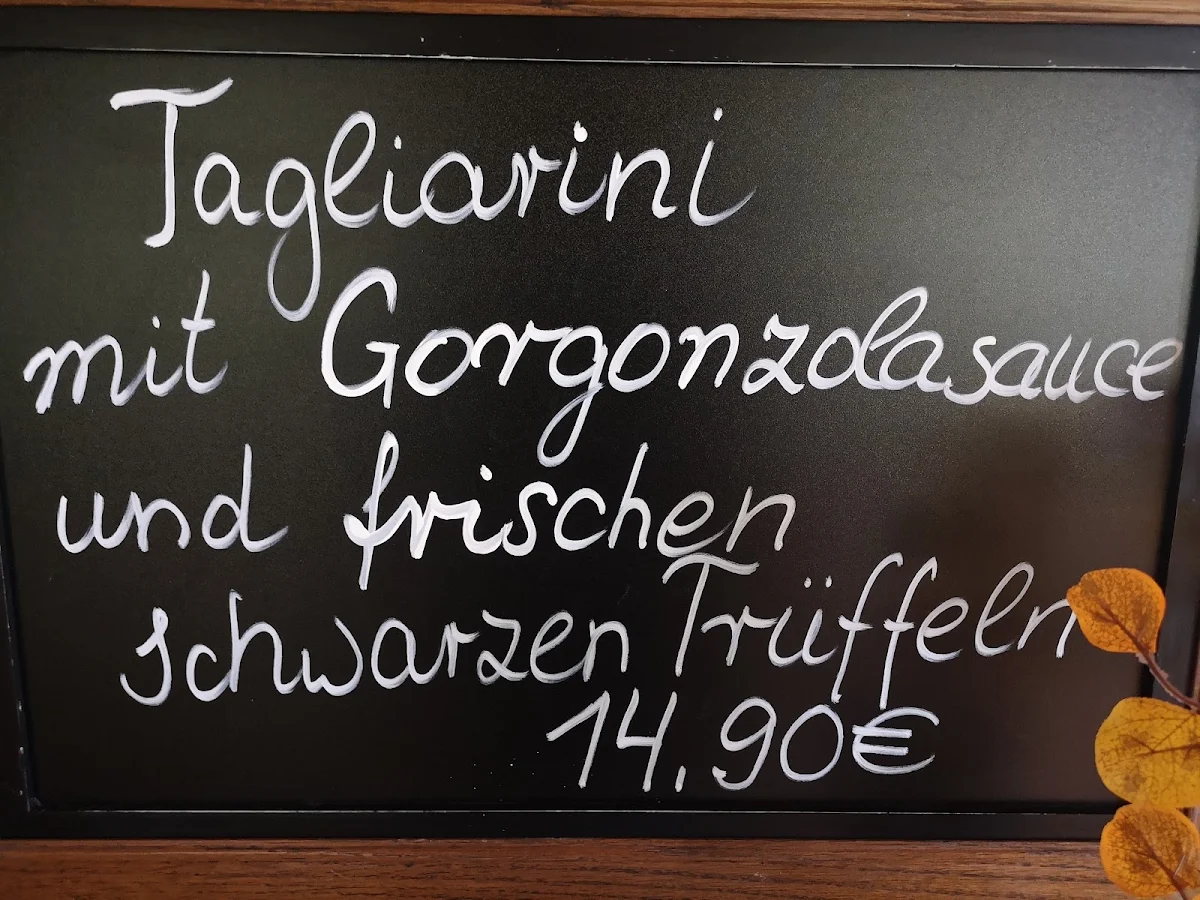 Tagliarini
mit Gorgonzolasauce
und frischen
schwarzen Trüffeln
14,90€